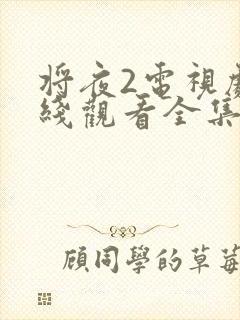 将夜2電視劇
綫觀看全集
顧同學的草莓